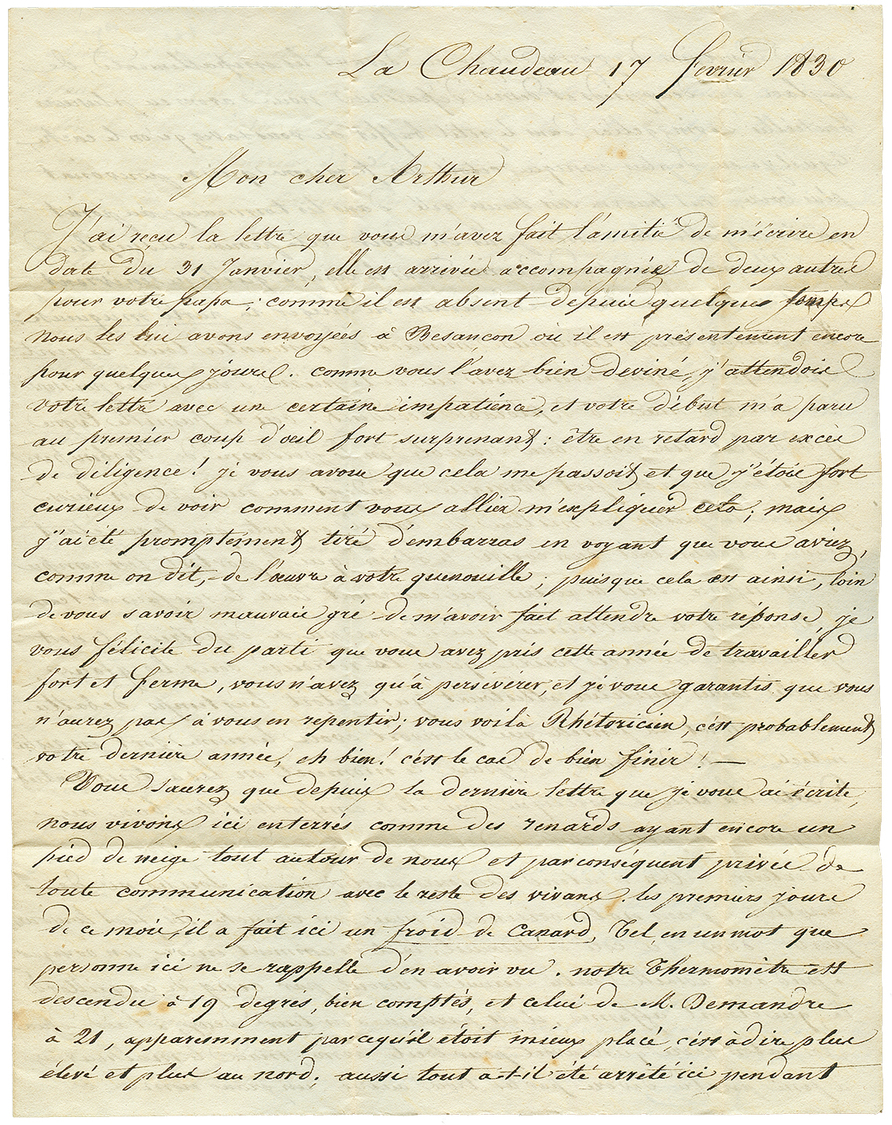 La Chaudeau 17 fevrier 1830
Mon cher Arthur
J'ai reçu la lettre que vous m'avez fait l'amitié de m'écrire en
date du 31 Janvier, elle est arrivée accompagnée de deux autres
pour votre papa; comme il est absent depuis quelques temps
nous les lui avons envoyées à Besançon où il est présentement encore
pour quelques jours. comme vous l'avez bien deviné, j'attendois
votre lettre avec une certaine impatience, et votre début m'a paru
au premier coup d'oeil fort surprenant: être en retard par excès
de diligence! je vous avoue que cela me passoit et que j'étois fort
curieux de voir comment vous alliez m'expliquer cela; mais
j'ai été promptement tiré d'embarras en voyant que vous aviez,
comme on dit, de l'œuvre à votre quenouille; puisque cela est ainsi, loin
de vous savoir mauvais gré de m'avoir fait attendre votre réponse, je
vous félicite du parti que vous avez pris cette année de travailler
fort et ferme, vous n'avez qu'à persévérer, et je vous garantis que vous
n'aurez pas à vous en repentir; vous voilà Rhétoricien, c'est probablement
votre dernière année, eh bien! c'est le cas de bien finir! —
Vous saurez que depuis la dernière lettre que je vous ai écrite,
nous vivons ici enterrés comme des renards ayant encore un
pied de neige tout autour de nous et par conséquent privés de
toute communication avec le reste des vivans. les premiers jours
de ce mois, il a fait ici un froid de Canard, Tel, en un mot que
personne ici ne se rappelle d'en avoir vu. notre Thermomètre est
descendu à 19 degrés, bien comptés, et celui de M. Demandre
à 21, apparemment parcequ'il étoit mieux placé, c'est à dire plus
élevé et plus au nord; aussi tout a-t-il été arrêté ici pendant